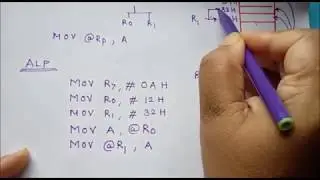 R0 R1
MOV @Rp, A
R1
ALP
MOV R7, # 0AH
MOV R0, # 12H
MOV R1, # 32H
MOV A, @R0
MOV @R1, A